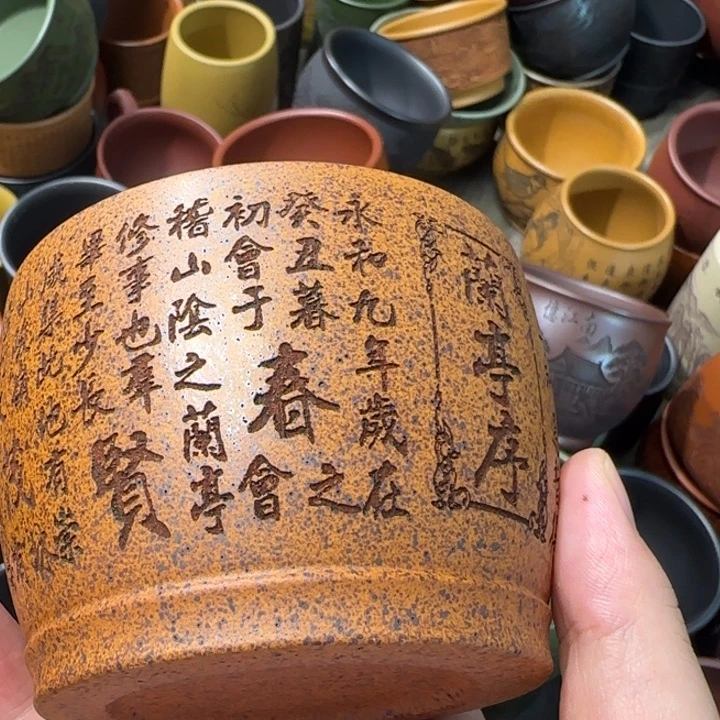 蘭亭序
永和九年歲在
癸丑暮春之
初會于會
稽山陰之蘭亭
修事也羣賢
畢至少長
咸集此地有崇
憶江南